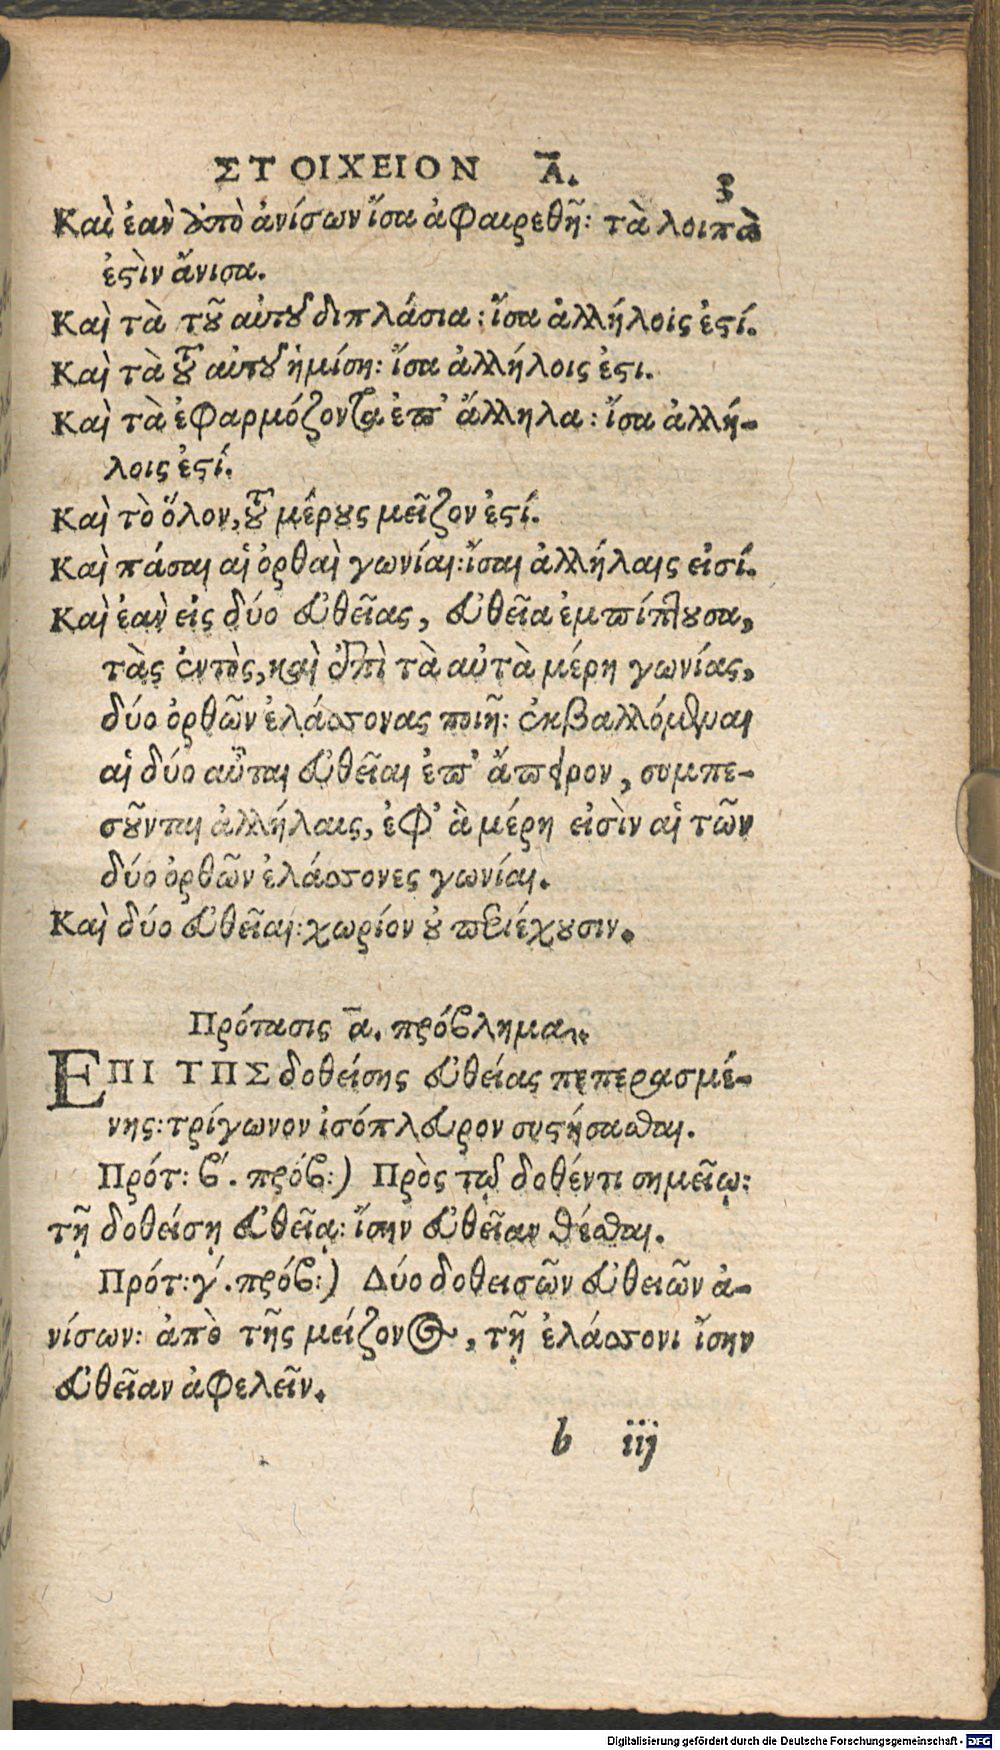 ΣΤΟΙΧΕΙΟΝ Α̅. 3
Καὶ ἐὰν ἀπὸ ἀνίσων ἴσα ἀφαιρεθῇ: τὰ λοιπὰ
ἐϛὶν ἄνισα.
Καὶ τὰ τοῦ αὐτοῦ διπλάσια: ἴσα ἀλλήλοις ἐϛί.
Καὶ τὰ τοῦ αὐτοῦ ἡμίση: ἴσα ἀλλήλοις ἐϛι.
Καὶ τὰ ἐφαρμόζοντα ἐπ' ἄλληλα: ἴσα ἀλλή-
λοις ἐϛί.
Καὶ τὸ ὅλον, τοῦ μέρους μεῖζον ἐϛί.
Καὶ πάσαι αἱ ὀρθαὶ γωνίαι: ἴσαι ἀλλήλαις εἰσί.
Καὶ ἐὰν εἰς δύο εὐθεῖας, εὐθεῖα ἐμπίπτουσα,
τὰς ἐντὸς, καὶ ἐπὶ τὰ αὐτὰ μέρη γωνίας,
δύο ὀρθῶν ἐλάττονας ποιῇ: ἐκβαλλόμεναι
αἱ δύο αὗται εὐθεῖαι ἐπ' ἄπειρον, συμπε-
σοῦνται ἀλλήλαις, ἐφ' ἃ μέρη εἰσὶν αἱ τῶν
δύο ὀρθῶν ἐλάττονες γωνίαι.
Καὶ δύο εὐθεῖαι: χωρίον οὐ περιέχουσιν.
Πρότασις α̅. πρόβλημα.
ΕΠΙ ΤΠΣ δοθείσης εὐθείας πεπερασμέ-
νης: τρίγωνον ἰσόπλευρον συϛήσασθαι.
Πρότ: β'. πρόβ:) Πρὸς τῷ δοθέντι σημεῖῳ:
τῇ δοθείσῃ εὐθεῖᾳ: ἴσην εὐθεῖαν θέσθαι.
Πρότ: γ'. πρόβ:) Δύο δοθεισῶν εὐθειῶν ἀ-
νίσων: ἀπὸ τῆς μείζονος, τῇ ἐλάττονι ἴσην
εὐθεῖαν ἀφελεῖν.
b iij
Digitalisierung gefördert durch die Deutsche Forschungsgemeinschaft - DFG